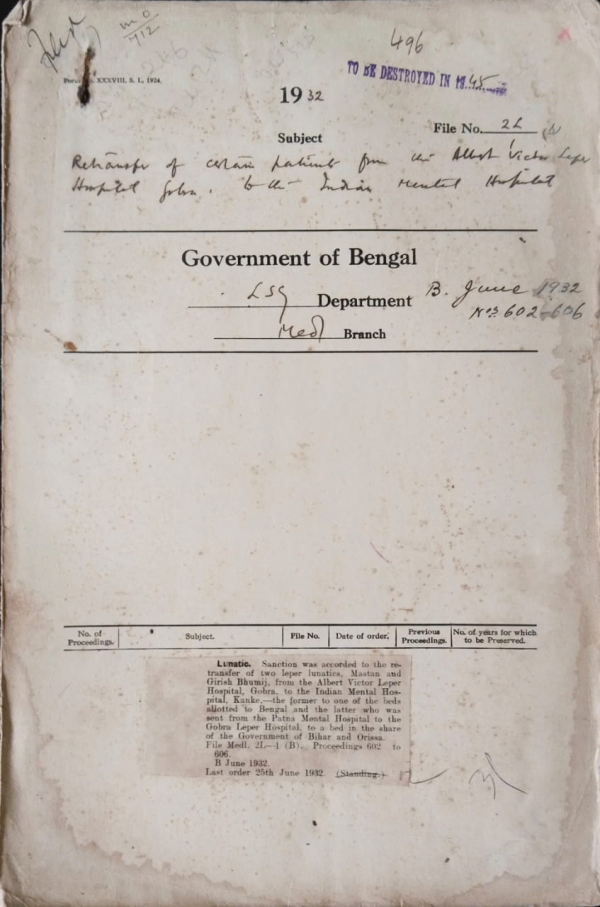 496
TO BE DESTROYED IN 1945
XXXVIII, S. I., 1924.
1932
File No. 2L
Subject
Retransfer of certain patients from the Albert Victor Leper
Hospital Gobra, to the Indian Mental Hospital
Government of Bengal
LSG Department B. June 1932
Nos 602-606
Medl Branch
No. of Proceedings. Subject. File No. Date of order. Previous Proceedings. No. of years for which to be Preserved.
Lunatic. Sanction was accorded to the re-
transfer of two leper lunatics, Mastan and
Girish Bhumij, from the Albert Victor Leper
Hospital, Gobra, to the Indian Mental Hos-
pital, Kanke,—the former to one of the beds
allotted to Bengal and the latter who was
sent from the Patna Mental Hospital to the
Gobra Leper Hospital, to a bed in the share
of the Government of Bihar and Orissa.
File Medl. 2L—1 (B). Proceedings 602 to
606.
B June 1932.
Last order 25th June 1932. (Standing.)